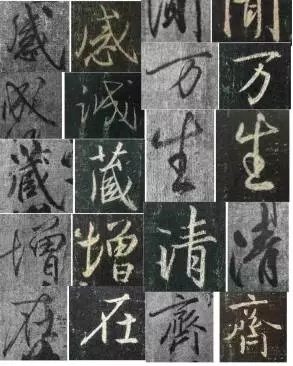 感 感
万 万
誠
生 生
藏 藏
增 增
清 清
在 在
齊 齋